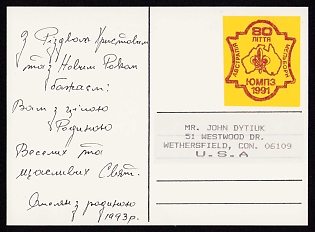 З Різдвом Христовим
та з Новим Роком
бажаєм:
Вам з цілою
Родиною
Веселих та
щасливих Свят.
Омелян з родиною
1993р.
80
ЛІТТЯ
ЮМПЗ
1991
MR. JOHN DYTIUK
51 WESTWOOD DR.
WETHERSFIELD, CON. 06109
U.S.A